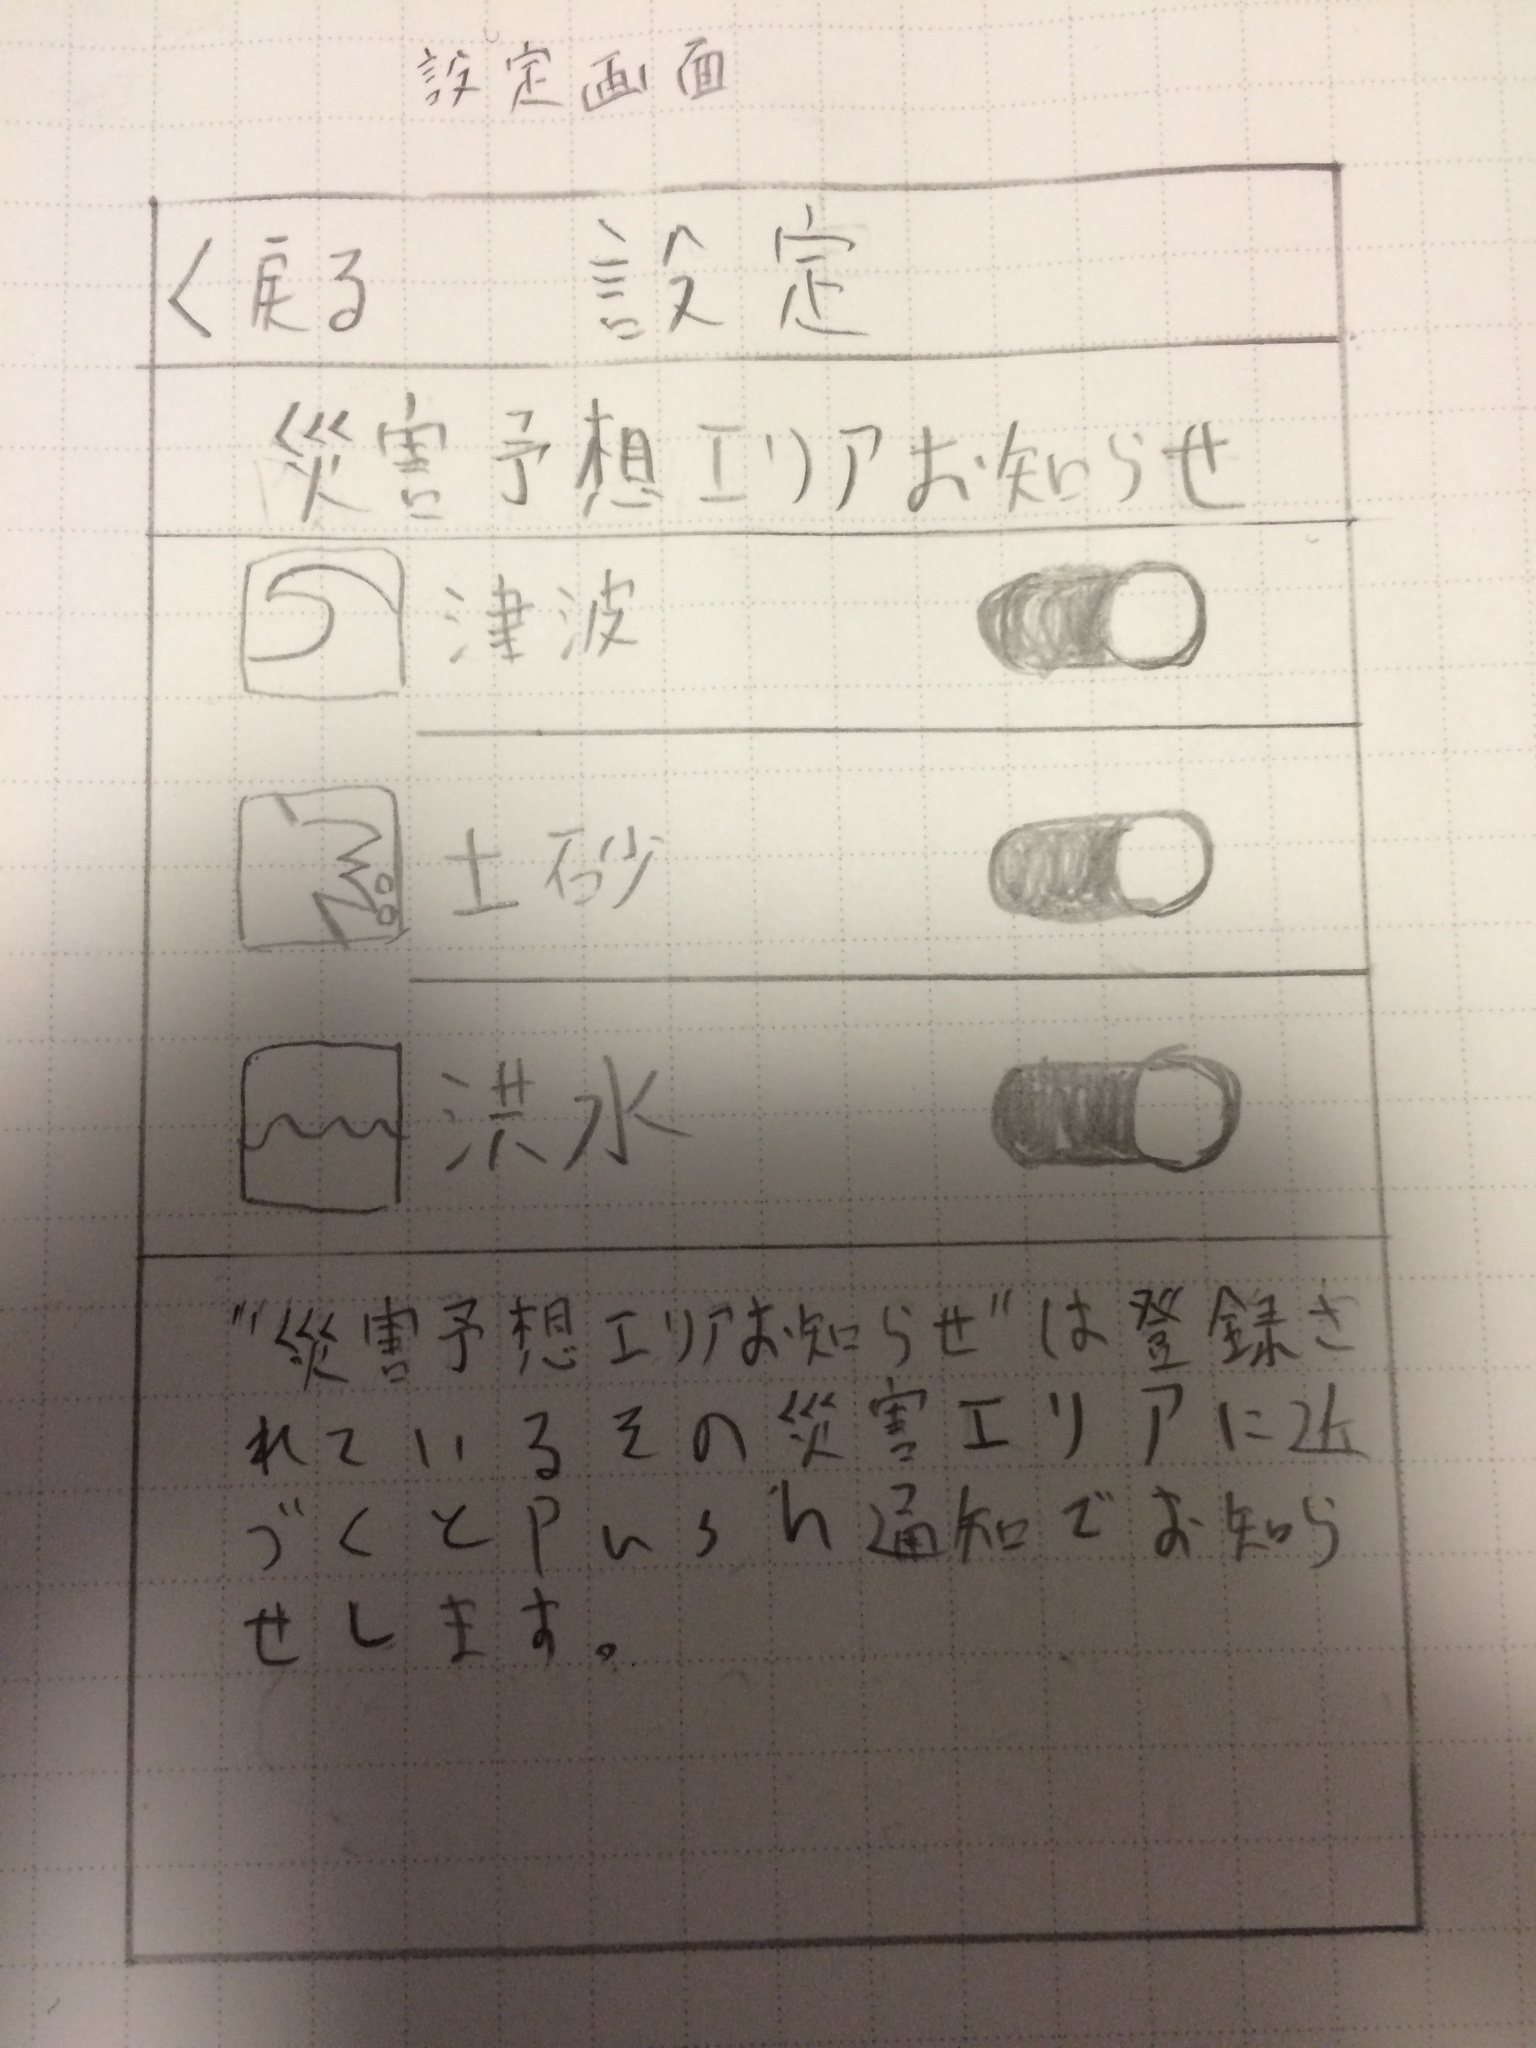 設定画面
く戻る 設定
災害予想エリアお知らせ
津波
土砂
洪水
"災害予想エリアお知らせ"は登録さ
れているその災害エリアに近
づくとPush通知でお知ら
せします。